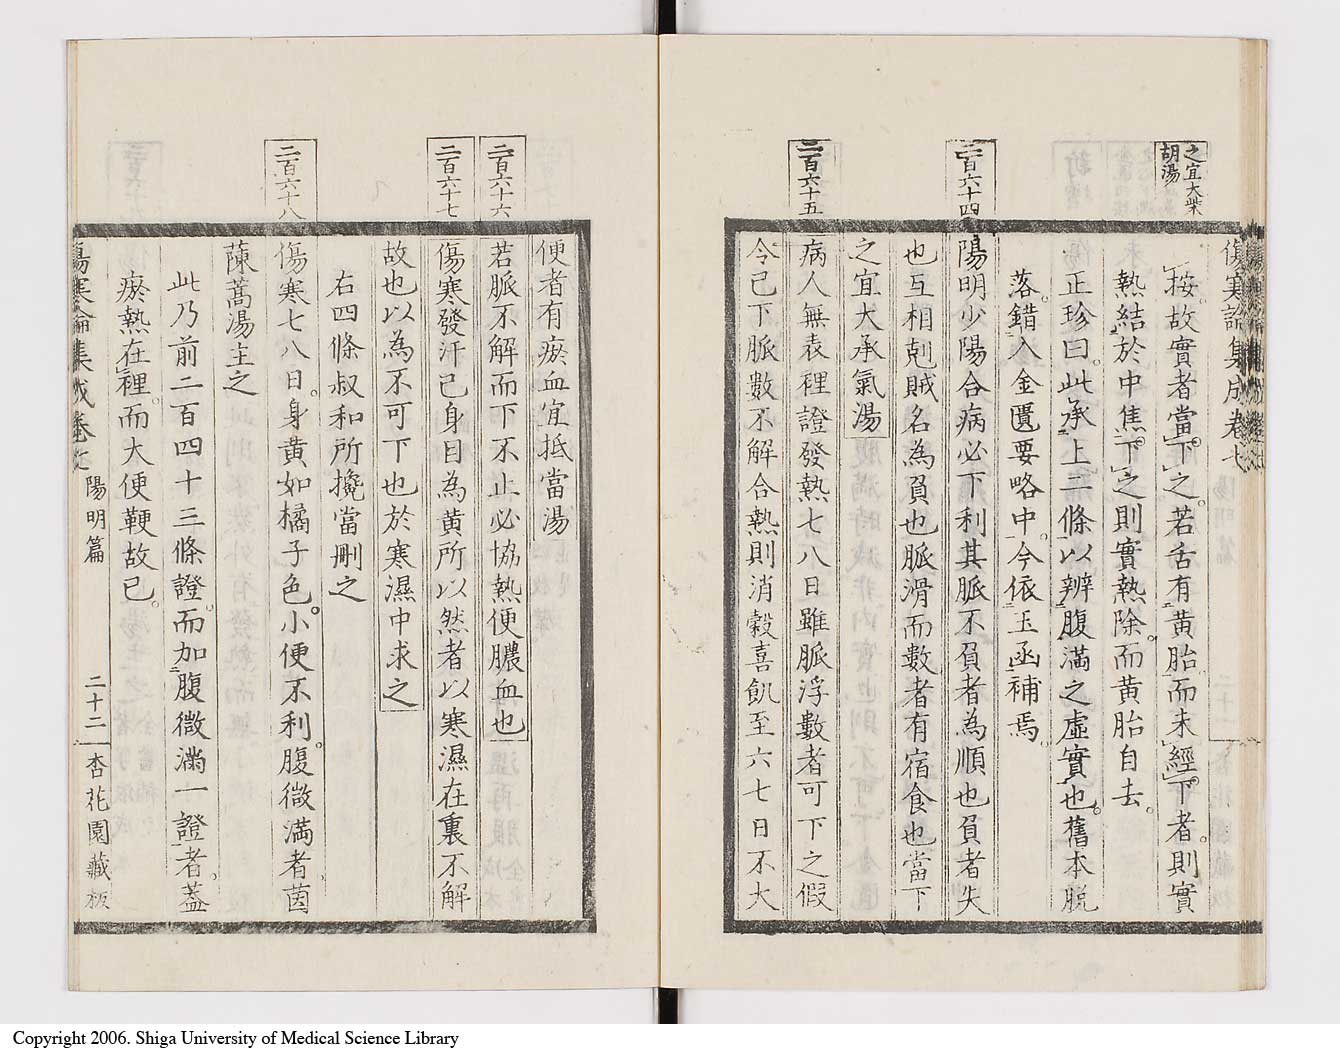 之宜大柴
胡湯
傷寒論集成卷七
按故實者當下之若舌有黃胎而未經下者則實
熱結於中焦下之則實熱除而黃胎自去
正珍曰此承上二條以辨腹滿之虛實也舊本脫
落錯入金匱要略中今依玉函補焉
二百六十四
陽明少陽合病必下利其脈不負者為順也負者失
也互相剋賊名為負也脈滑而數者有宿食也當下
之宜大承氣湯
二百六十五
病人無表裡證發熱七八日雖脈浮數者可下之假
令已下脈數不解合熱則消穀喜飢至六七日不大
便者有瘀血宜抵當湯
二百六十六
若脈不解而下不止必協熱便膿血也
二百六十七
傷寒發汗已身目為黃所以然者以寒濕在裏不解
故也以為不可下也於寒濕中求之
右四條叔和所攙當刪之
二百六十八
傷寒七八日身黃如橘子色小便不利腹微滿者茵
蔯蒿湯主之
此乃前二百四十三條證而加腹微滿一證者蓋
瘀熱在裡而大便鞕故已
陽明篇
二十二
杏花園藏板
Copyright 2006. Shiga University of Medical Science Library